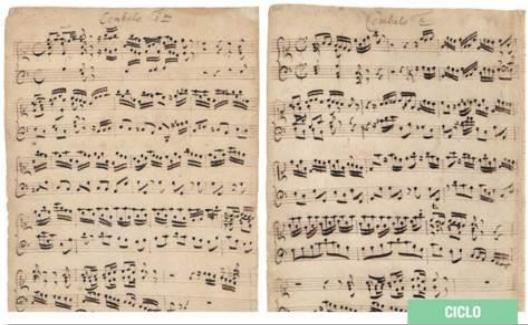 Cembalo 1mo
Cembalo 2
CICLO